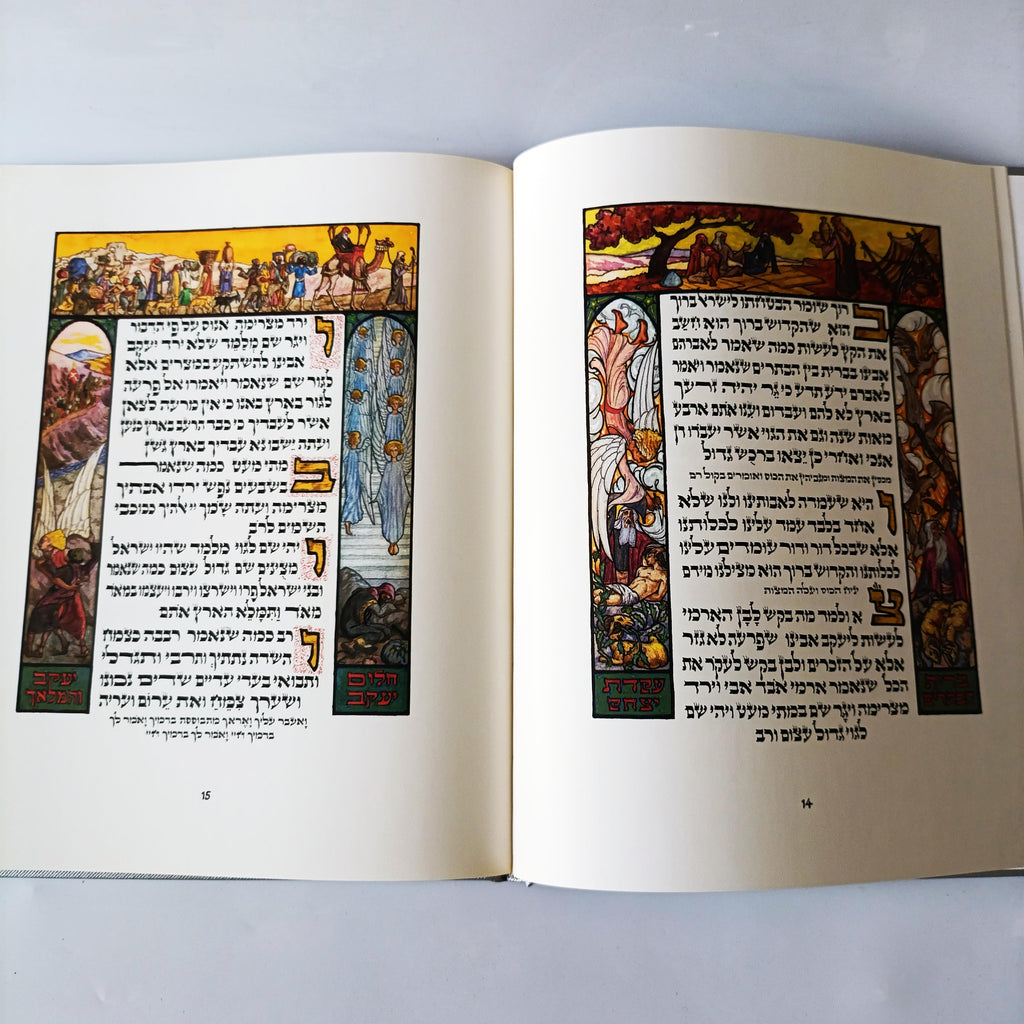 ברוך שומר הבטחתו לישרא ברוך
הוא שהקדוש ברוך הוא חשב
את הקץ לעשות כמה שאמר לאברהם
אבינו בברית בין הבתרים שנאמר ויאמר
לאברם ידע תדע כי גר יהיה זרעך
בארץ לא להם ועבדום וענו אתם ארבע
מאות שנה וגם את הגוי אשר יעבדו דן
אנכי ואחרי כן יצאו ברכש גדול
מכסין את המצות ומגביהין את הכוס ואומרים בקול רם
והיא שעמדה לאבותינו ולנו שלא
אחד בלבד עמד עלינו לכלותנו
אלא שבכל דור ודור עומדים עלינו
לכלותנו והקדוש ברוך הוא מצילנו מידם
יניח הכוס ויגלה המצות
צא ולמד מה בקש לבן הארמי
לעשות ליעקב אבינו שפרעה לא גזר
אלא על הזכרים ולבן בקש לעקר את
הכל שנאמר ארמי אבד אבי וירד
מצרימה ויגר שם במתי מעט ויהי שם
לגוי גדול עצום ורב
ברית
עקדת
יצחק
14
וירד מצרימה אנוס על פי הדבור
ויגר שם מלמד שלא ירד יעקב
אבינו להשתקע במצרים אלא
לגור שם שנאמר ויאמרו אל פרעה
לגור בארץ באנו כי אין מרעה לצאן
אשר לעבדיך כי כבד הרעב בארץ כנען
ועתה ישבו נא עבדיך בארץ גשן
במתי מעט כמה שנאמר
בשבעים נפש ירדו אבתיך
מצרימה ועתה שמך יי אלהיך ככוכבי
השמים לרב
ויהי שם לגוי מלמד שהיו ישראל
מצוינים שם גדול עצום כמה שנאמר
ובני ישראל פרו וישרצו וירבו ויעצמו במאד
מאד ותמלא הארץ אתם
ורב כמה שנאמר רבבה כצמח
השדה נתתיך ותרבי ותגדלי
ותבואי בעדי עדיים שדים נכנו
ושערך צמח ואת ערום ועריה
ואעבר עליך ואראך מתבוססת בדמיך ואמר לך
בדמיך חיי ואמר לך בדמיך חיי
חלום
יעקב
יעקב
והמלאך
15